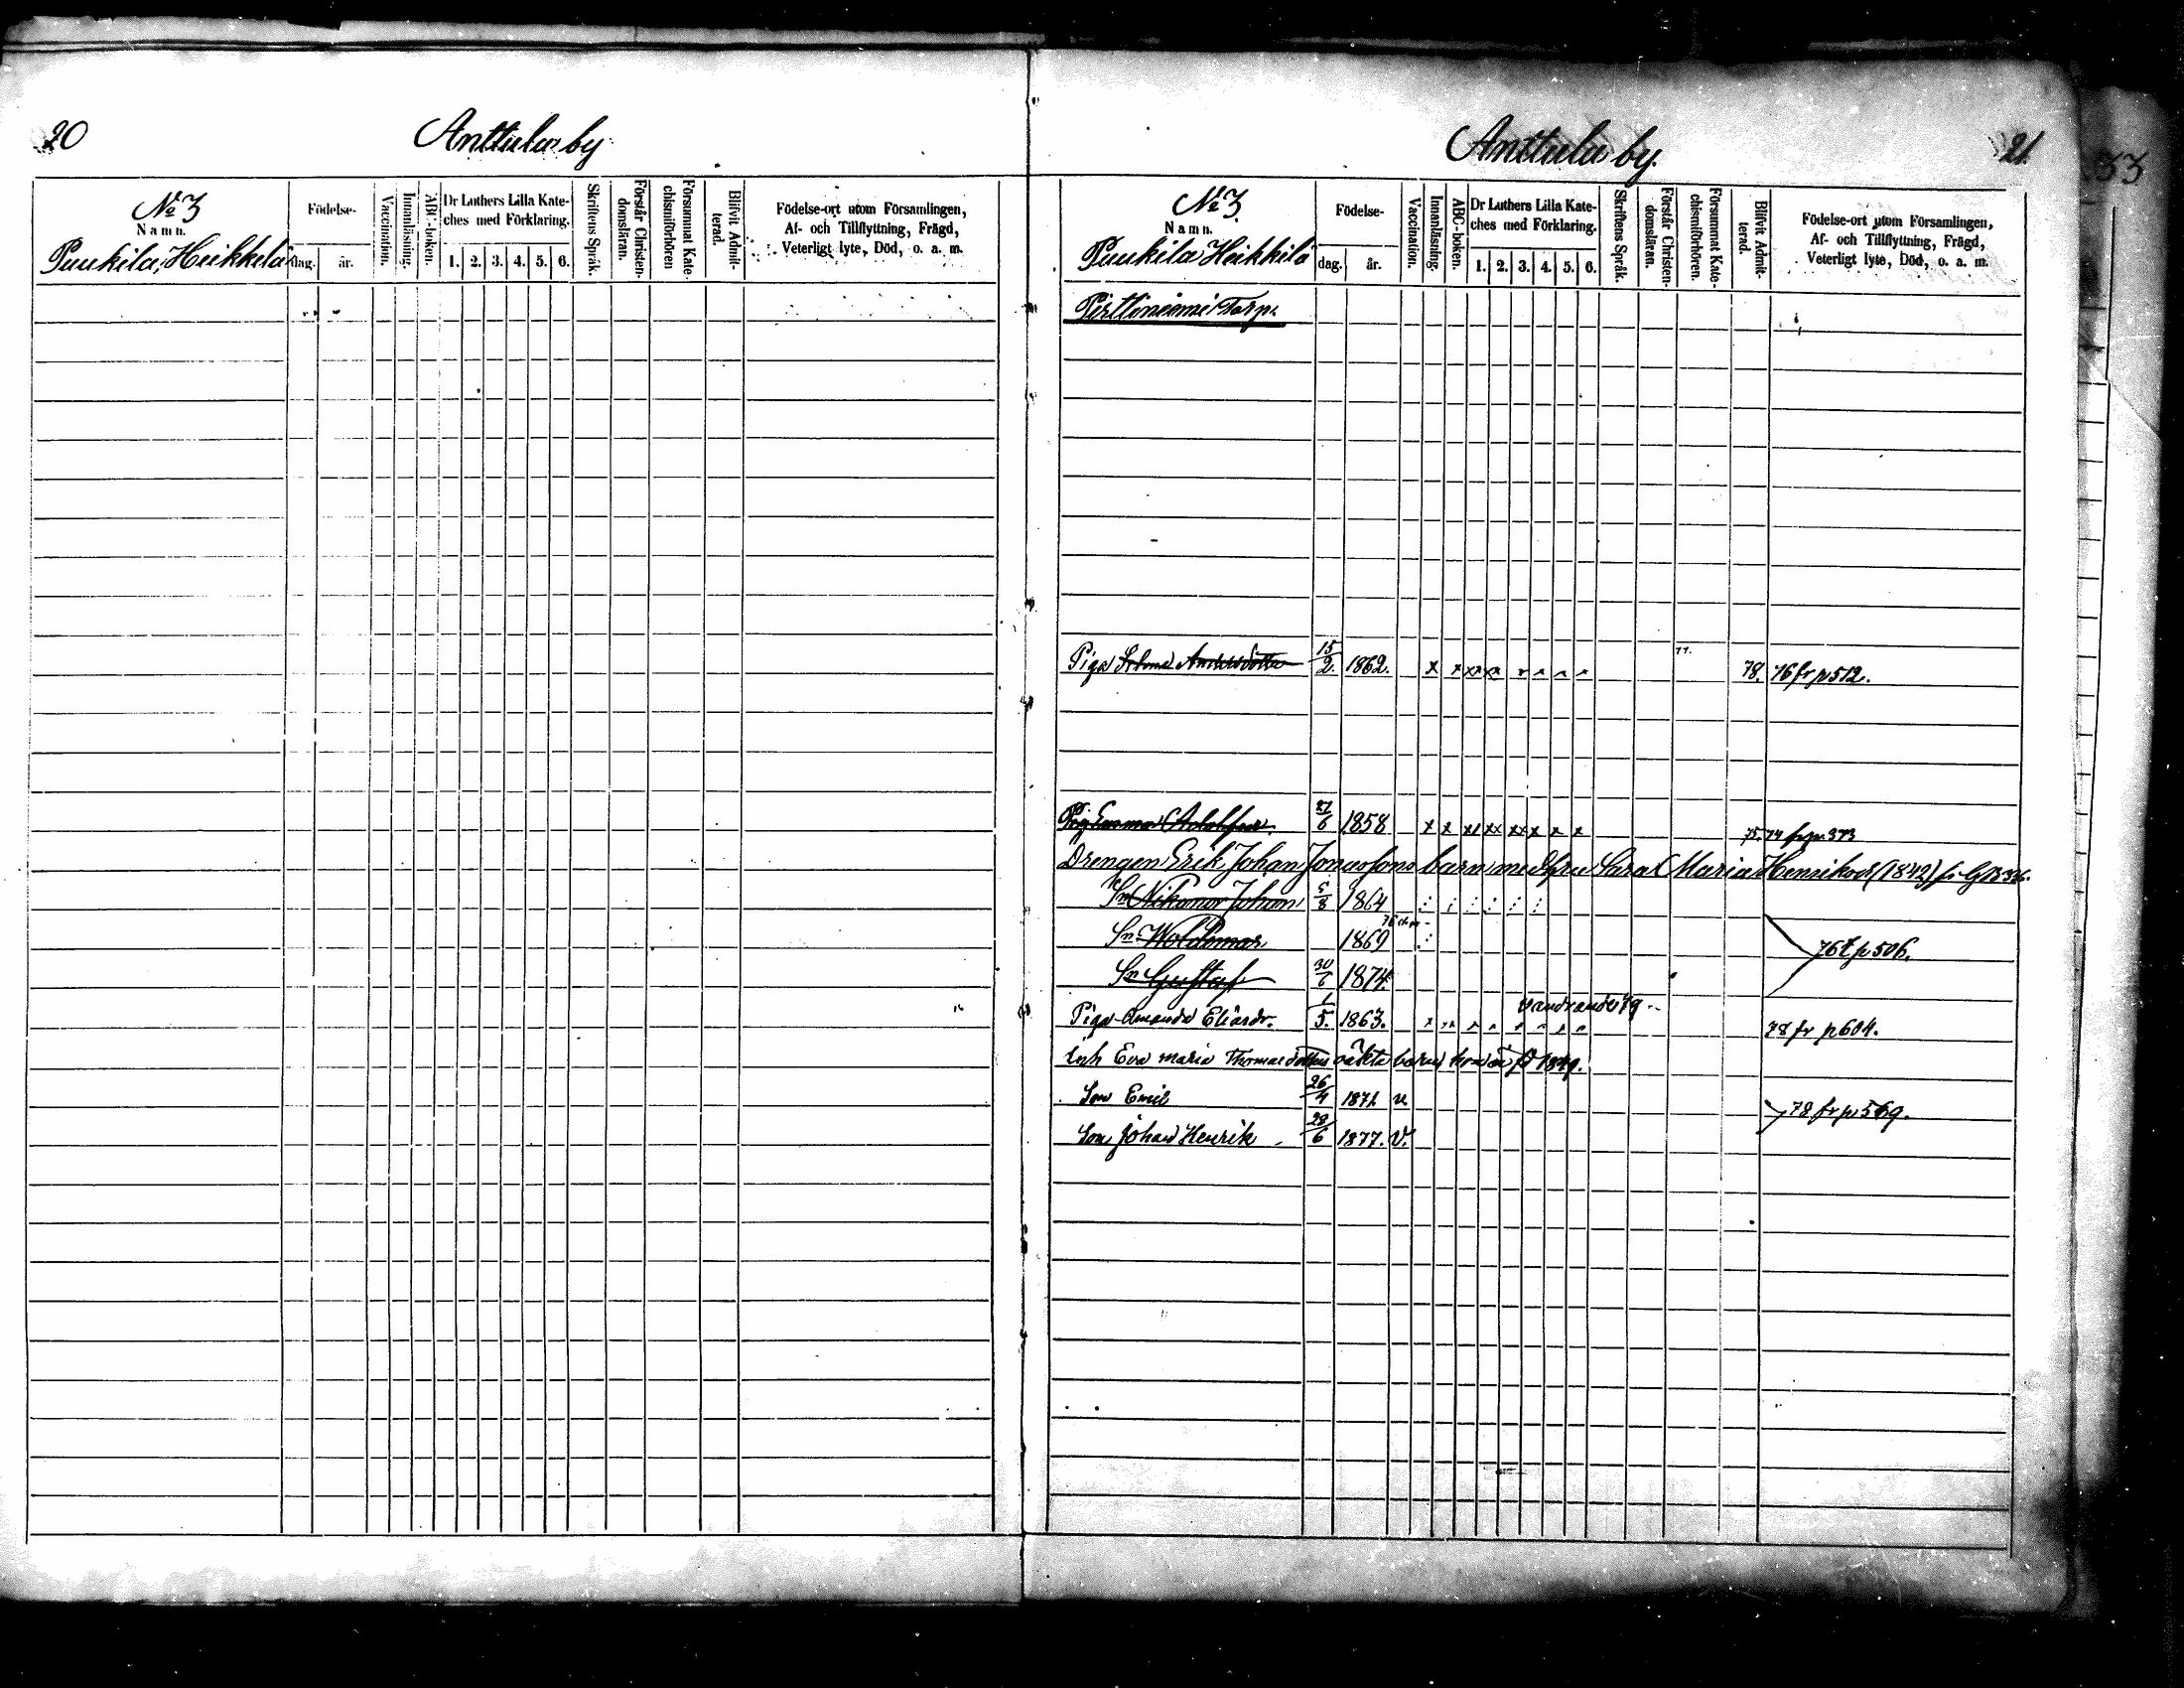 20
Anttula by
No 3
Namn.
Puukila, Heikkilä
Födelse-
dag.
år.
Vaccination.
Innanläsning.
ABC-boken.
Dr Luthers Lilla Kate-
ches med Förklaring.
1. 2. 3. 4. 5. 6.
Skriftens Språk.
Förstår Christen-
domsläran.
Försummat Kate-
chismiförhören
Blifvit Admit-
terad.
Födelse-ort utom Församlingen,
Af- och Tillflyttning, Frägd,
Veterligt lyte, Död, o. a. m.
Anttula by.
21.
33
No 3.
Namn.
Puukila Heikkilä
Födelse-
dag.
år.
Vaccination.
Innanläsning.
ABC-boken.
Dr Luthers Lilla Kate-
ches med Förklaring.
1. 2. 3. 4. 5. 6.
Skriftens Språk.
Förstår Christen-
domsläran.
Försummat Kate-
chismiförhören.
Blifvit Admit-
terad.
Födelse-ort utom Församlingen,
Af- och Tillflyttning, Frägd,
Veterligt lyte, Död, o. a. m.
Torp.
Piga Andersdotter 15/2. 1862. x x xx xx 77. 78. 76 fr p 512.
Pig Emma 27/6 1858 x x xx xx x x x 75. 74 fr p. 373
Drengen Erik Johan Jonassons barn med Sara Maria Henriksdr (1842)
Sn Nikanor Johan 5/8 1864
Sn Woldemar 1869 76 t p 506.
Sn Gustaf 30/6 1874
Piga Amanda Eliasdr. 1/5. 1863. 79 78 fr p 604.
Inh Eva Maria Thomasdotters oäkta barn 1849.
Son Emil 26/4 1871 v 78 fr p 569.
Son Johan Henrik 28/6 1877. V.